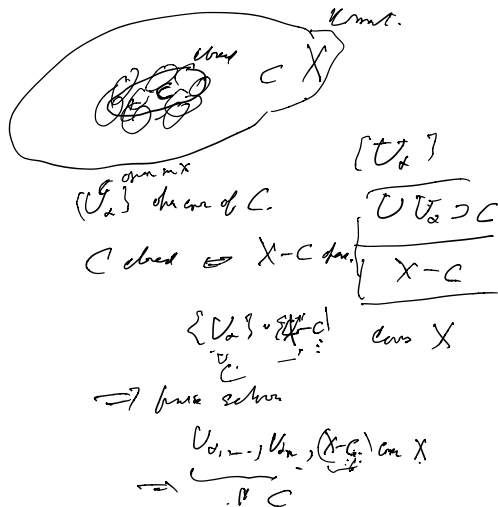 closed
C X
C
{U_α}
open in X
{U_α} open cover of C.
∪ U_α ⊃ C
C closed ⇔ X-C open.
X-C
{U_α} ∪ {X-C} covers X
C.
⇒ finite
U_α1, ..., U_αn, (X-C) cover X
⇒ C